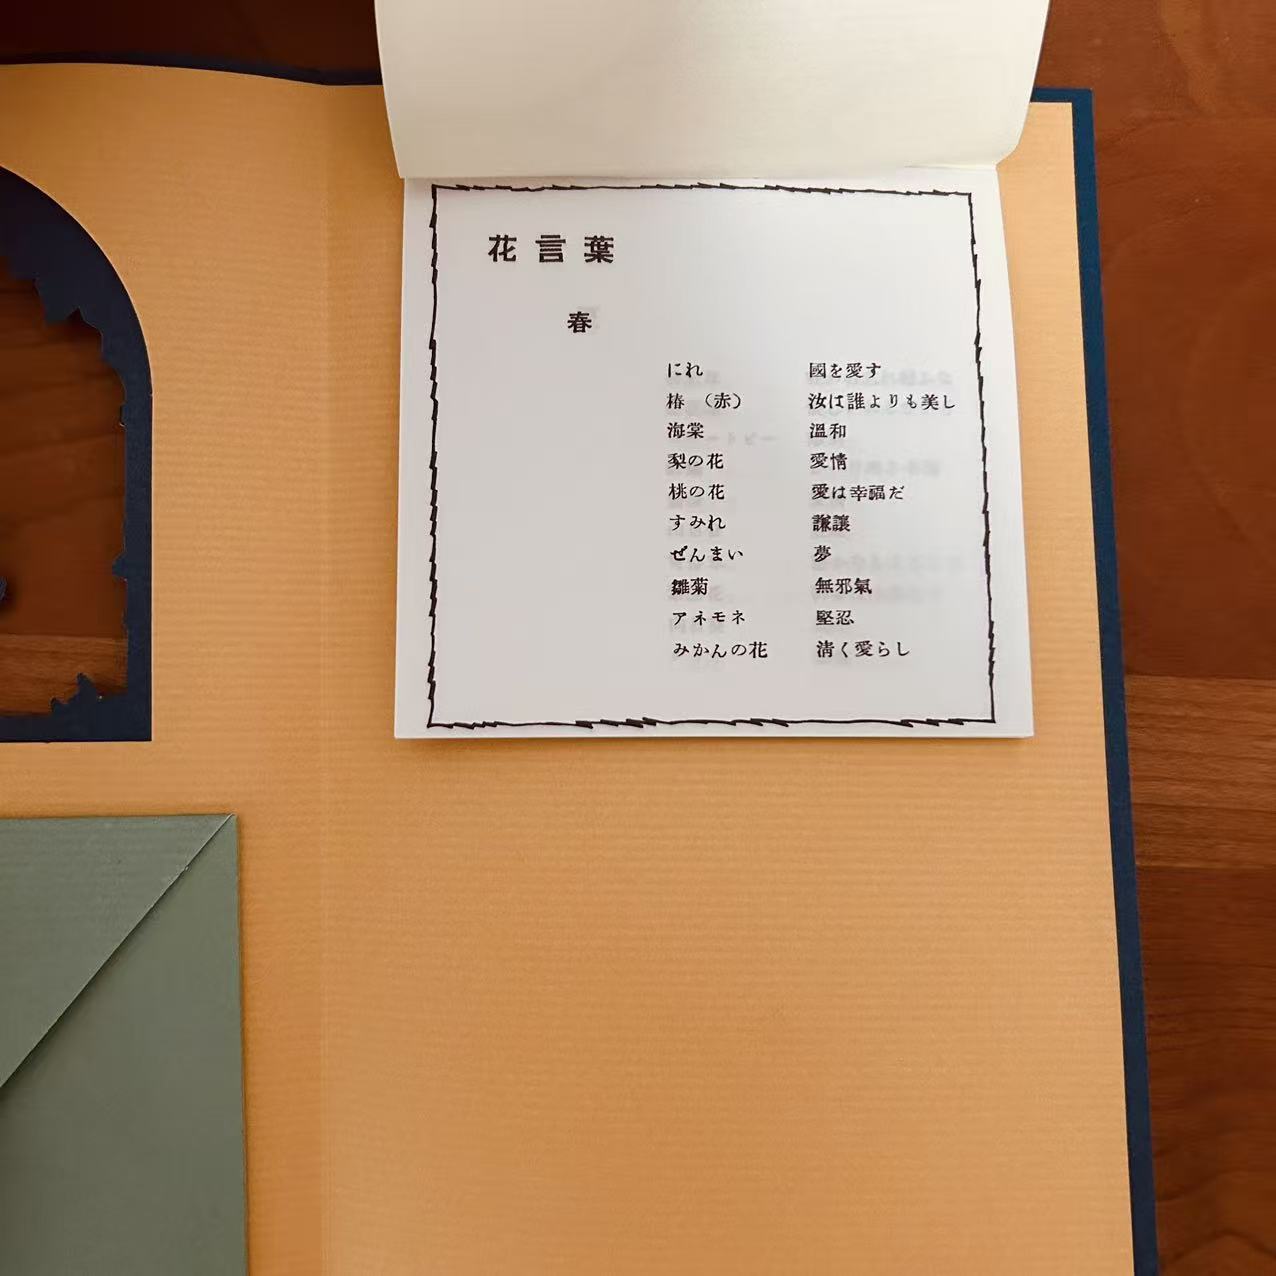 花言葉
春
にれ 國を愛す
椿 (赤) 汝は誰よりも美し
海棠 溫和
梨の花 愛情
桃の花 愛は幸福だ
すみれ 謙讓
ぜんまい 夢
雛菊 無邪氣
アネモネ 堅忍
みかんの花 淸く愛らし